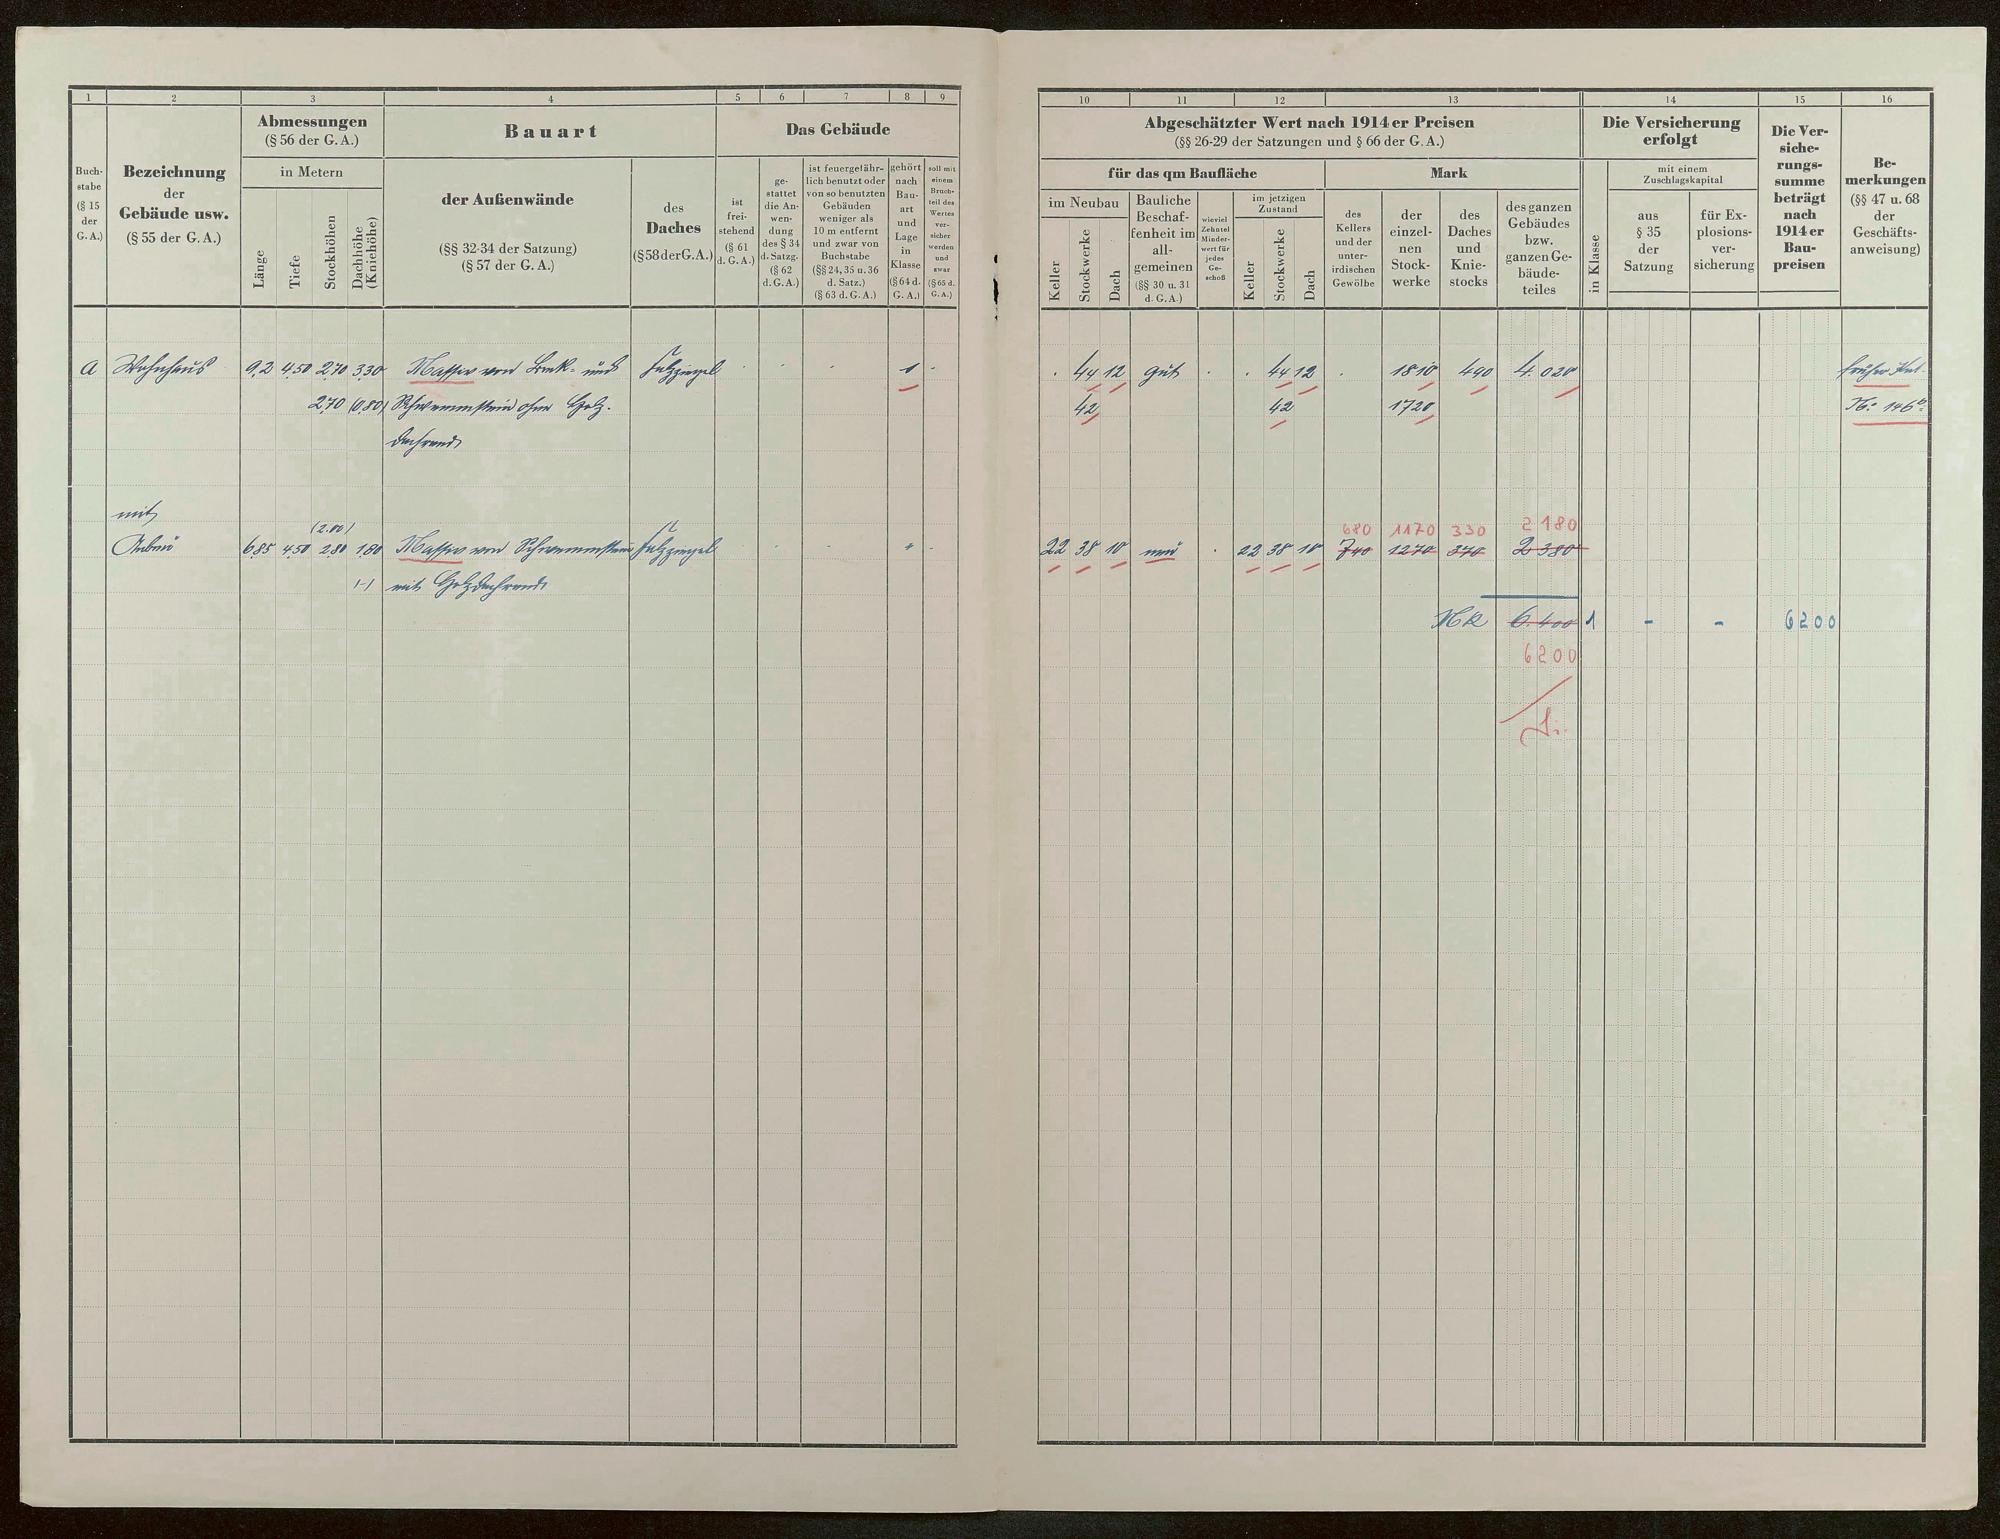 1 2 3 4 5 6 7 8 9
Buch-
stabe
(§ 15
der
G. A.)
Bezeichnung
der
Gebäude usw.
(§ 55 der G. A.)
Abmessungen
(§ 56 der G. A.)
in Metern
Länge
Tiefe
Stockhöhen
Dachhöhe
(Kniehöhe)
Bauart
der Außenwände
(§§ 32-34 der Satzung)
(§ 57 der G. A.)
des
Daches
(§ 58 der G. A.)
Das Gebäude
ist
frei-
stehend
(§ 61
d. G. A.)
ge-
stattet
die An-
wen-
dung
des § 34
d. Satzg.
(§ 62
d. G. A.)
ist feuergefähr-
lich benutzt oder
von so benutzten
Gebäuden
weniger als
10 m entfernt
und zwar von
Buchstabe
(§§ 24, 35 u. 36
d. Satz.)
(§ 63 d. G. A.)
gehört
nach
Bau-
art
und
Lage
in
Klasse
(§ 64 d.
G. A.)
soll mit
einem
Bruch-
teil des
Wertes
ver-
sicher
werden
und
zwar
(§ 65 d.
G. A.)
a Wohnhaus 9,2 4,50 2,70 3,30 Massiv von Bruch- und Falzziegel 1
2,70 (0,80) Schwemmstein ohne Holz-
dachrand
mit
(2.00)
Anbau 6,85 4,50 2,80 1,80 Massiv von Schwemmstein Falzziegel
mit Holzdachrand
10 11 12 13 14 15 16
Abgeschätzter Wert nach 1914er Preisen
(§§ 26-29 der Satzungen und § 66 der G. A.)
für das qm Baufläche
im Neubau
Keller
Stockwerke
Dach
Bauliche
Beschaf-
fenheit im
all-
gemeinen
(§§ 30 u. 31
d. G. A.)
wieviel
Zehntel
Minder-
wert für
jedes
Ge-
schoß
im jetzigen
Zustand
Keller
Stockwerke
Dach
Mark
des
Kellers
und der
unter-
irdischen
Gewölbe
der
einzel-
nen
Stock-
werke
des
Daches
und
Knie-
stocks
des ganzen
Gebäudes
bzw.
ganzen Ge-
bäude-
teiles
Die Versicherung
erfolgt
in Klasse
mit einem
Zuschlagskapital
aus
§ 35
der
Satzung
für Ex-
plosions-
ver-
sicherung
Die Ver-
siche-
rungs-
summe
beträgt
nach
1914er
Bau-
preisen
Be-
merkungen
(§§ 47 u. 68
der
Geschäfts-
anweisung)
44 12 gut 44 12 1810 490 4.020 früher
42 42 1720 No. 146b
680 1170 330 2180
22 38 10 neu 22 38 10 740 1270 370 2380
Mk 6.400 1 - - 6200
6200